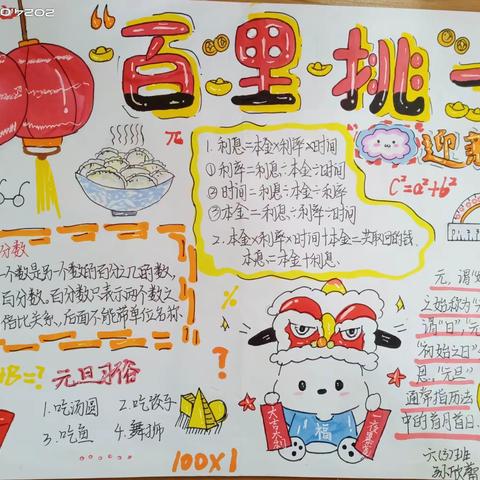 “百里挑一
π
1. 利息=本金×利率×时间
①利率=利息÷本金÷时间
②时间=利息÷本金÷利率
③本金=利息÷利率÷时间
2. 本金×利率×时间+本金=共取回的钱
本息=本金+利息
迎
C²=a²+b²
分数
一个数是另一个数的百分之几的数,
百分数。百分数只表示两个数之
倍比关系,后面不能带单位名称
%
B=?
元旦习俗
1.吃汤圆 2.吃饺子
3.吃鱼 4.舞狮
?
100×1
福
大吉大利
一夜暴富
元,谓“
之始称为“元
谓“日”,“元
“初始之日”
思,“元旦”
通常指历法
中的首月首日.
六(3)班